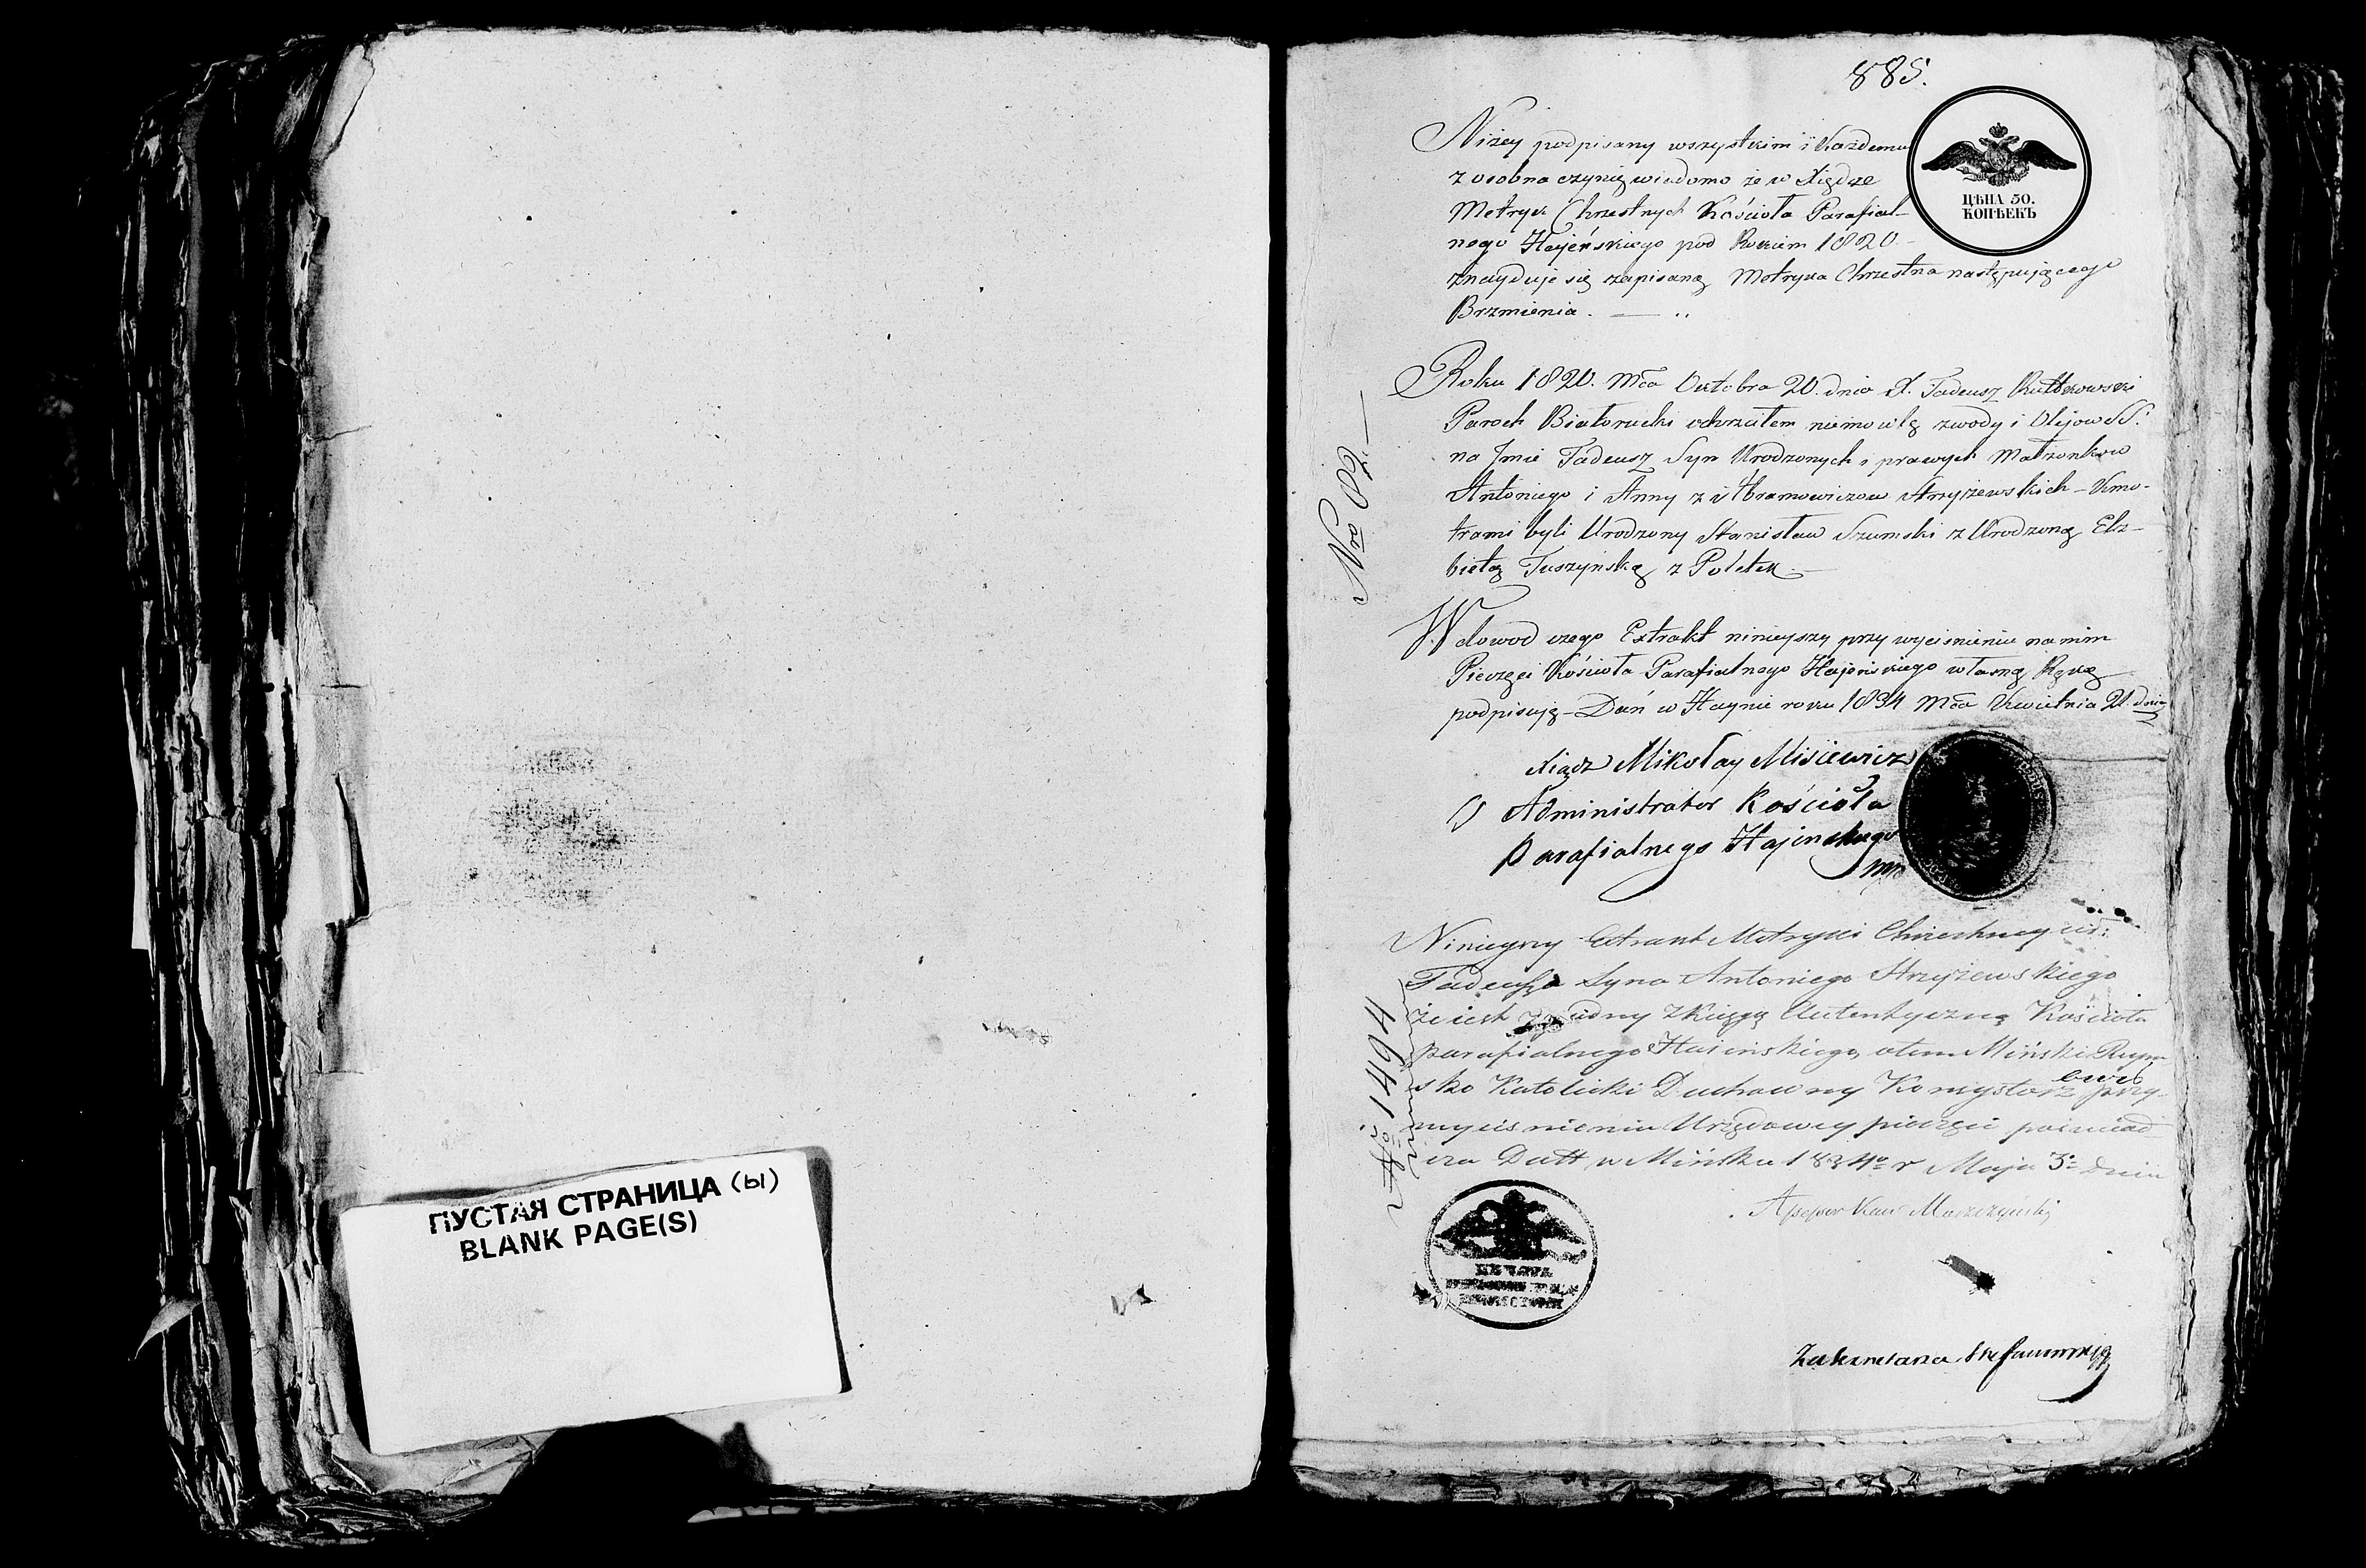 ПУСТАЯ СТРАНИЦА (ы)
BLANK PAGE(S)
885.
ЦѢНА 50.
КОПѢЕКЪ
Niżey podpisany wszystkim i Każdemu
z osobna czynię wiadomo że w Xiędze
Metryk Chrzestnych Kościoła Parafial-
nego Hajeńskiego pod Rokiem 1820 -
znayduje się zapisaną Metryka Chrzestna następującego
Brzmienia. — ..
Nro 82. —
Roku 1820. Mca Oktobra 20. dnia X. Tadeusz Rutkowski
Paroch Białorucki ochrzciłem niemowlę z wody i Olejow SS:
na Jmie Tadeusz Syn Urodzonych i prawych Małżonkow
Antoniego i Anny z Abramowiczow Strzyżewskich - Kmo-
trami byli Urodzony Stanisław Szumski z Urodzoną Elż-
bietą Tuszyńską z
W dowod czego Extrakt ninieyszy przy wyciśnieniu na nim
Pieczęci Kościoła Parafialnego Hajeńskiego własną Ręką
podpisuję - Dań w Haynie roku 1834 Mca Kwietnia 21 dnia
Xiądz Mikołay Misiewicz
Administrator Kościoła
Parafialnego Hajenskiego
mp
Nro 1494
Ninieyszy Extrakt Metryki Chrzestney
Tadeusza Syna Antoniego Strzyżewskiego
że iest zgodny z Xięgą Autentyczną Kościoła
parafialnego Haienskiego, o tem Miński Rzym
sko Katolicki Duchowny Konsystorz przy
wyciśnieniu Urzędowey pieczęci poświad
cza Datt w Mińsku 1834o r Maja 3o dnia
Assesor Kan